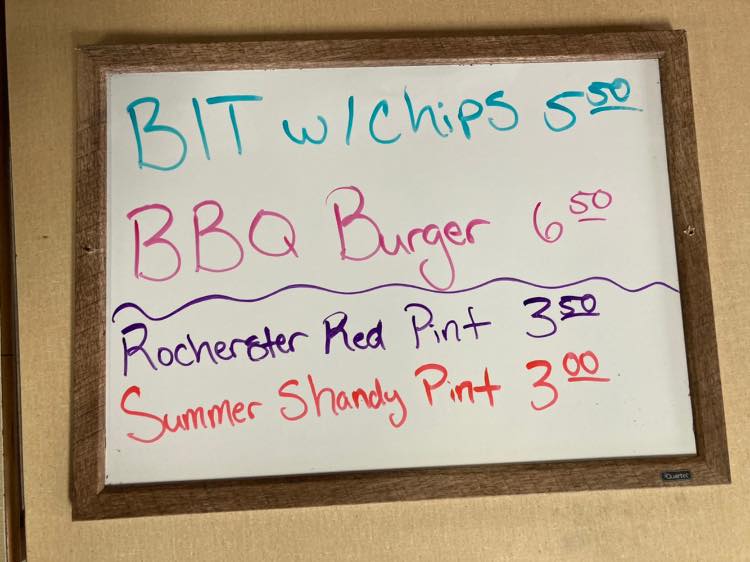 BIT w/Chips 5 50
BBQ Burger 6 50
Rocherster Red Pint 3 50
Summer Shandy Pint 3 00
Quartet